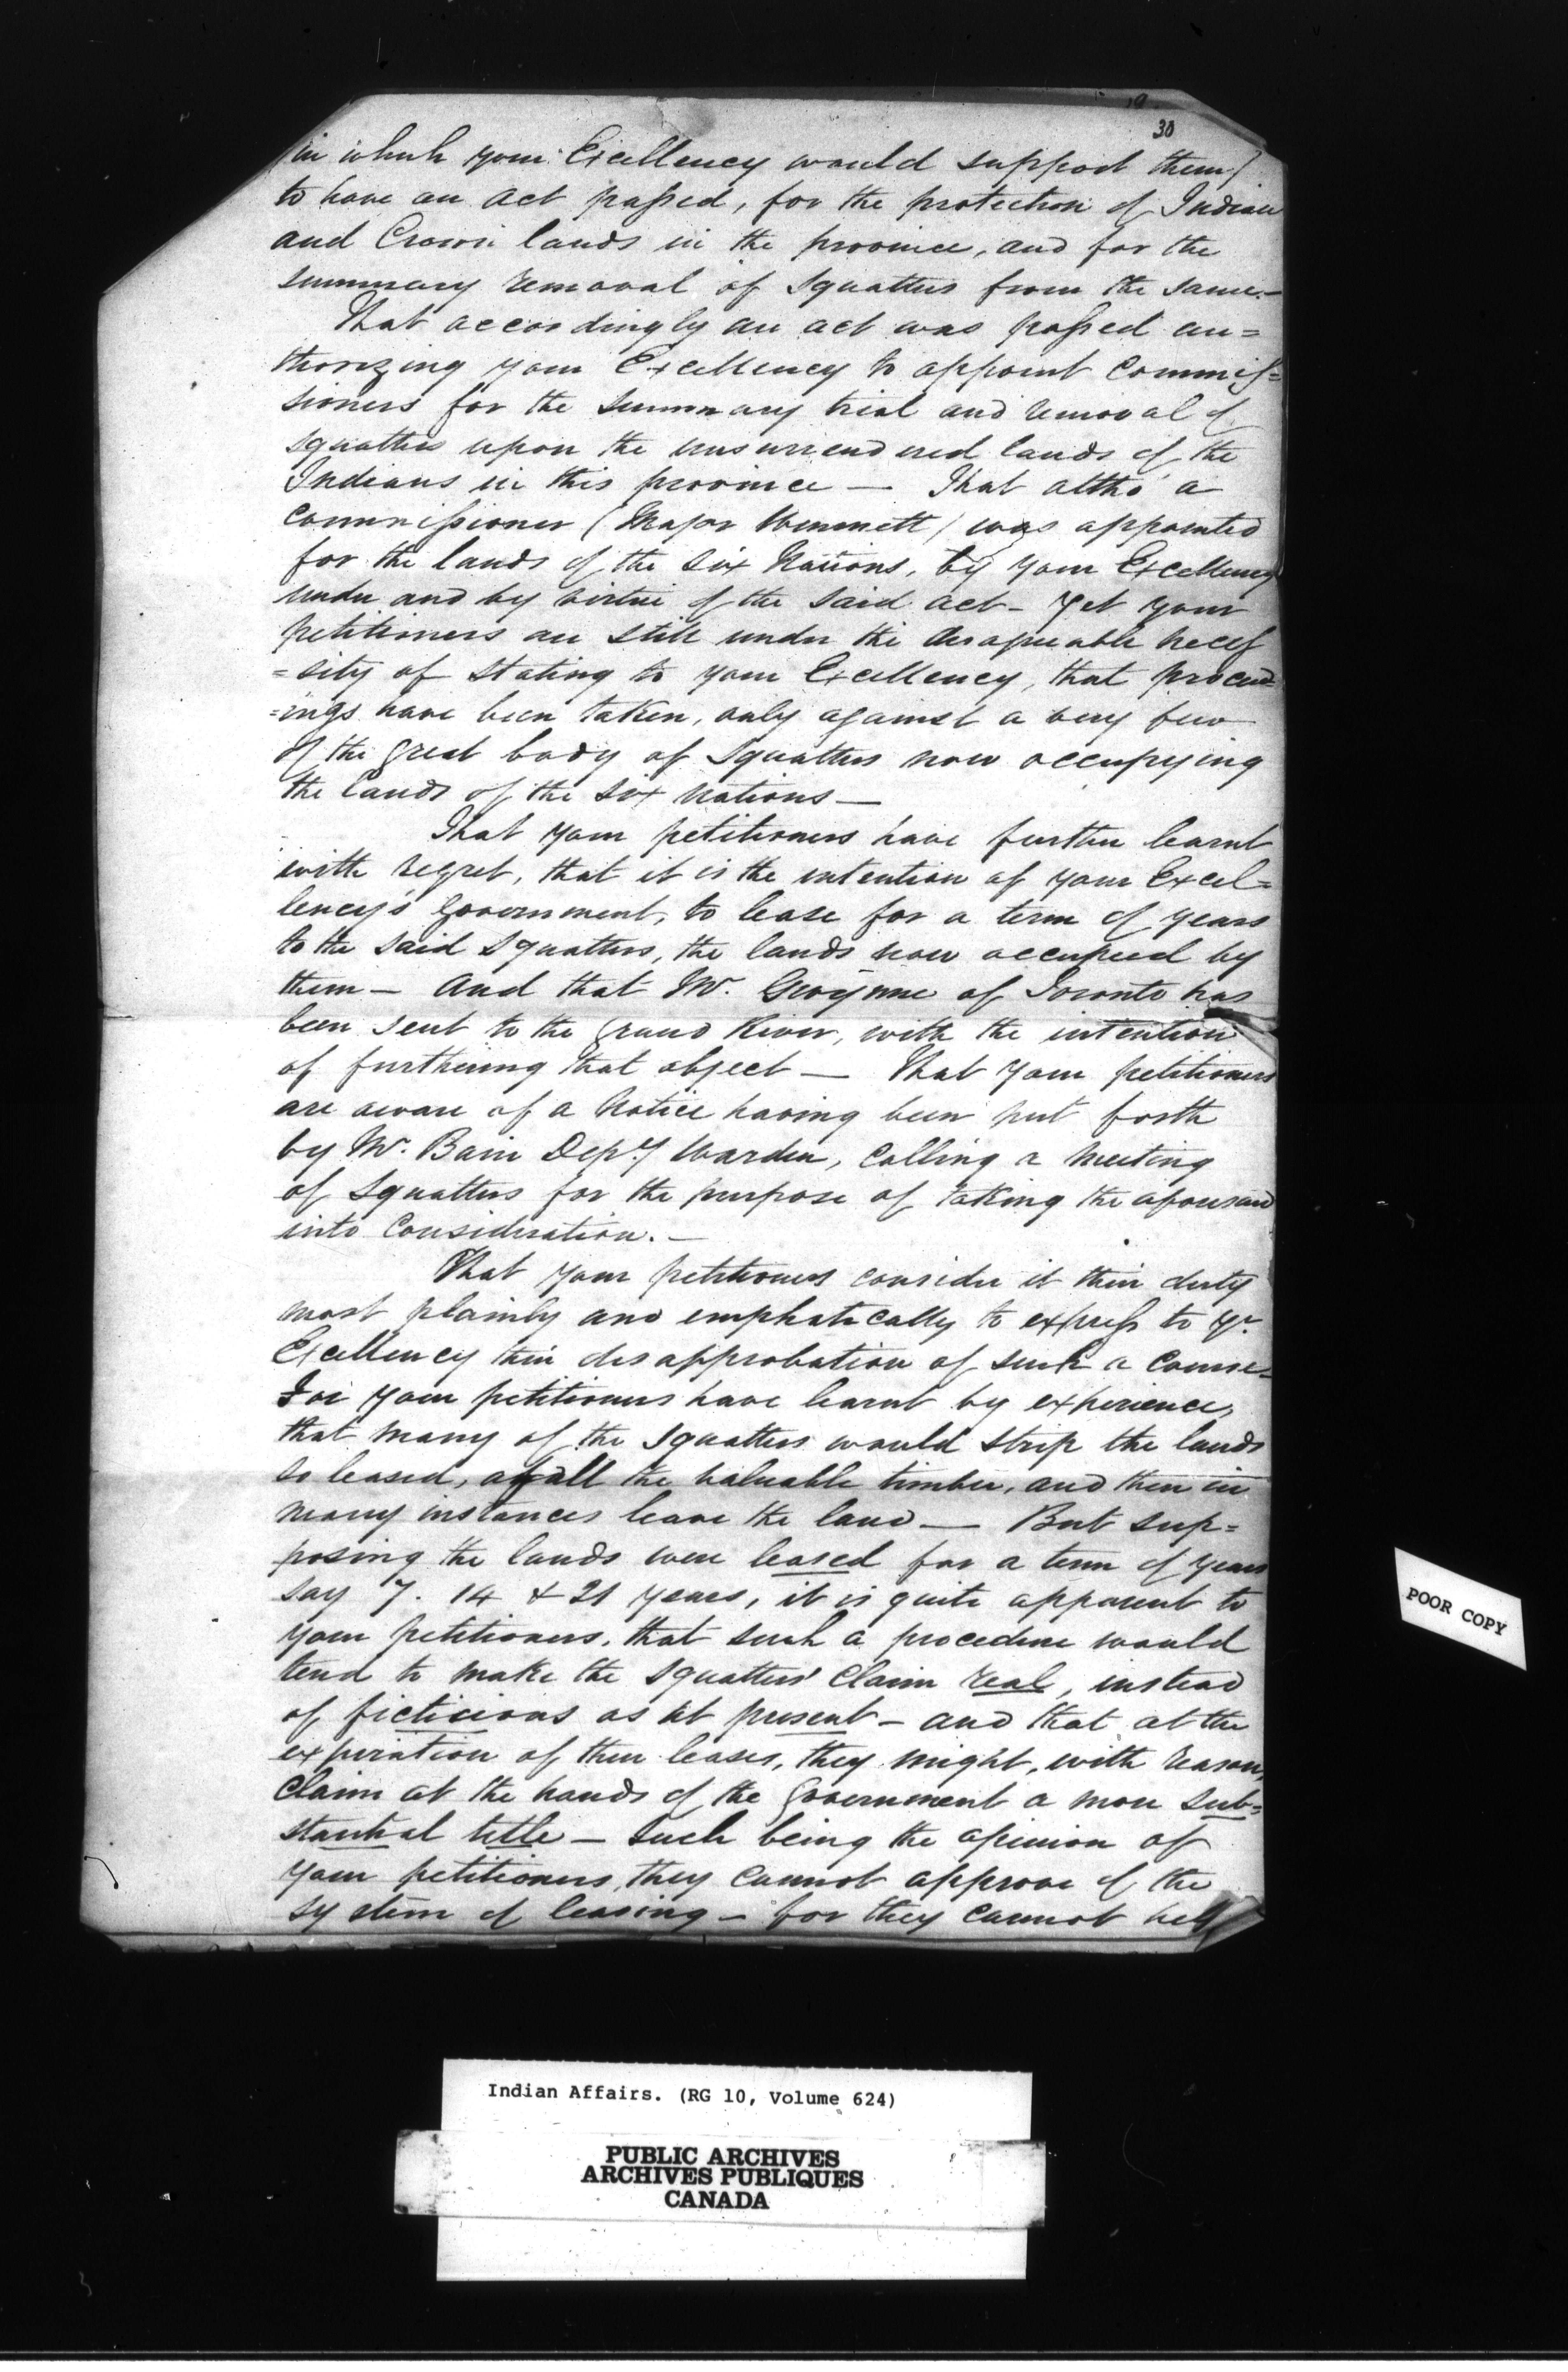 30
(in which your Excellency would support them)
to have an Act passed, for the protection of Indian
and Crown lands in the province, and for the
summary removal of squatters from the same.—
That accordingly an act was passed au=
thorizing your Excellency to appoint Commis=
sioners for the summary trial and removal of
squatters upon the unsurrendered lands of the
Indians in this province — That altho' a
commissioner (Major Winniett) was appointed
for the lands of the Six Nations, by your Excellency
under and by virtue of the said act – yet your
petitioners are still under the disagreeable neces
=sity of stating to your Excellency, that proceed=
=ings have been taken, only against a very few
of the great body of Squatters now occupying
the lands of the Six Nations —
That your petitioners have further learnt
with regret, that it is the intention of your Excel=
lency's Government, to lease for a term of years
to the said squatters, the lands now occupied by
them — And that Mr. Gwynne of Toronto has
been sent to the Grand River, with the intention
of furthering that object — That your petitioners
are aware of a Notice having been put forth
by Mr. Bain Depy Warden, calling a Meeting
of Squatters for the purpose of taking the aforesaid
into Consideration. —
That your petitioners consider it their duty
most plainly and emphatically to express to Yr.
Excellency their disapprobation of such a course–
For your petitioners have learnt by experience,
that many of the squatters would strip the lands
so leased, of all the valuable timber, and then in
many instances leave the land — But sup=
posing the lands were leased for a term of years
say 7. 14 & 21 years, it is quite apparent to
your petitioners, that such a procedure would
tend to make the squatters' claim real, instead
of ficticious as at present – and that at the
expiration of their leases, they might, with reason,
claim at the hands of the Government a more sub=
stantial title – such being the opinion of
your petitioners, they cannot approve of the
system of leasing – for they cannot help
POOR COPY
Indian Affairs. (RG 10, Volume 624)
PUBLIC ARCHIVES
ARCHIVES PUBLIQUES
CANADA